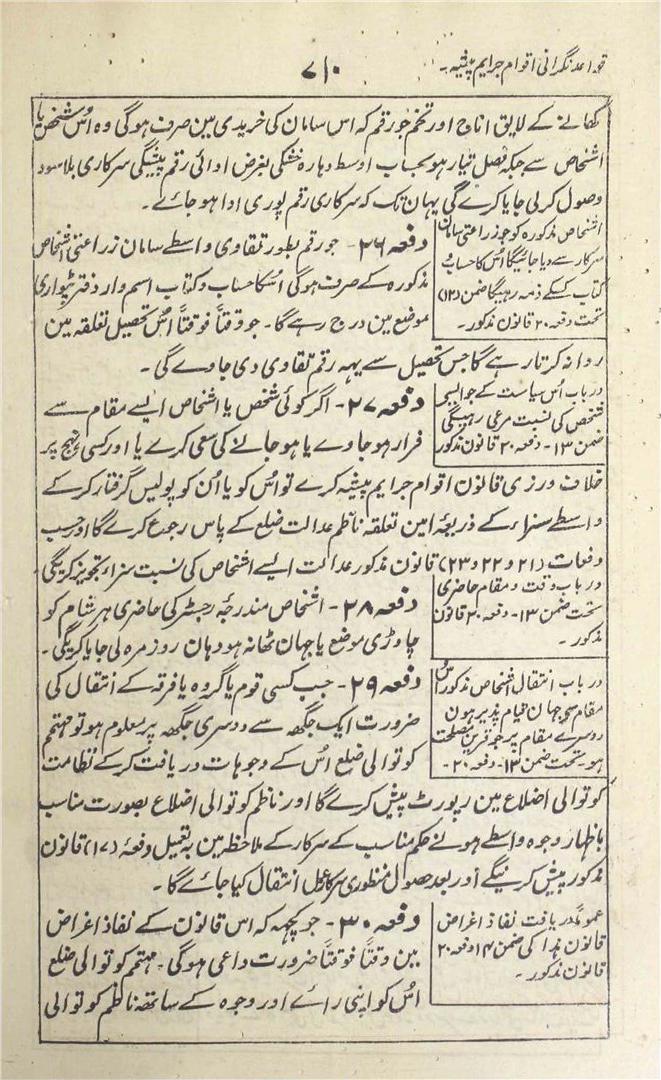 قواعد نگرانی اقوام جرایم پیشہ ۔
۷۱۰
کھانے کے لایق اناج اور تخم جو رقم کہ اس سامان کی خریدی مین صرف ہوگی وہ اُس شخص یا
اشخاص سے جبکہ فصل تیار ہو بحساب اوسط دہارہ خشکی بغرض ادائی رقم پیشگی سرکاری بلا سود
وصول کرلی جایا کرے گی یہان تک کہ سرکاری رقم پوری ادا ہو جائے ۔
اشخاص مذکورہ کو جو زراعتی سامان
سرکار سے دیا جائیگا اُس کا حساب و
کتاب کسکے ذمہ رہیگا ضمن (۱۲)
تحت دفعہ ۲۰ قانون مذکور ۔
دفعہ ۲۶ ۔ جو رقم بطور تقاوی واسطے سامان زراعتی اشخاص
مذکورہ کے صرف ہوگی اُسکا حساب و کتاب اسم وار دفتر پٹواری
موضع مین درج رہے گا ۔ جو وقتاً فوقتاً اُس تحصیل تعلقہ مین
روانہ کرتا رہے گا جس تحصیل سے یہہ رقم تقاوی دی جاوے گی ۔
در باب اُس سیاست کے جو ایسی
شخص کی نسبت مرعی رہیگی
ضمن ۱۳ ۔ دفعہ ۲۰ قانون مذکور
دفعہ ۲۷ ۔ اگر کوئی شخص یا اشخاص ایسے مقام سے
فرار ہو جاوے یا ہو جانے کی سعی کرے یا اور کسی نہج پر
خلاف ورزی قانون اقوام جرایم پیشہ کرے تو اُس کو یا اُن کو پولیس گرفتار کر کے
واسطے سزاء کے ذریعۂ امین تعلقہ ناظم عدالت ضلع کے پاس رجوع کرے گا اور حسب
دفعات (۲۱ و ۲۲ و ۲۳) قانون مذکور عدالت ایسے اشخاص کی نسبت سزاء تجویز کریگی ۔
در باب وقت و مقام حاضری
تحت ضمن ۱۳ ۔ دفعہ ۲۰ قانون
مذکور ۔
دفعہ ۲۸ ۔ اشخاص مندرجۂ رجسٹر کی حاضری ہر شام کو
چاوڑی موضع یا جہان تھانہ ہو وہان روز مرہ لی جایا کریگی ۔
در باب انتقال اشخاص مذکور اُس
مقام سے جہان قیام پذیر ہون
دوسرے مقام پر جو قرین مصلحت
ہو ۔ تحت ضمن ۱۳ ۔ دفعہ ۲۰ ۔
دفعہ ۲۹ ۔ جب کسی قوم یا گروہ یا فرقہ کے انتقال کی
ضرورت ایک جگھہ سے دوسری جگھہ پر معلوم ہو تو مہتمم
کوتوالی ضلع اُس کے وجوہات دریافت کر کے نظامت
کوتوالی اضلاع مین رپورٹ پیش کرے گا اور ناظم کوتوالی اضلاع بصورت مناسب
باظہار وجوہ واسطے ہونے حکم مناسب کے سرکار کے ملاحظہ مین بہ تعمیل دفعۂ (۱۷) قانون
مذکور پیش کرینگے اور بعد حصول منظوری سرکار عمل انتقال کیا جائے گا ۔
عموماً دریافت نفاذ اغراض
قانون ہذا کی ضمن ۱۴ دفعہ ۲۰
قانون مذکور ۔
دفعہ ۳۰ ۔ جو کچہہ کہ اس قانون کے نفاذ اغراض
مین وقتاً فوقتاً ضرورت داعی ہوگی ۔ مہتمم کوتوالی ضلع
اُس کو اپنی رائے اور وجوہ کے ساتھہ ناظم کوتوالی